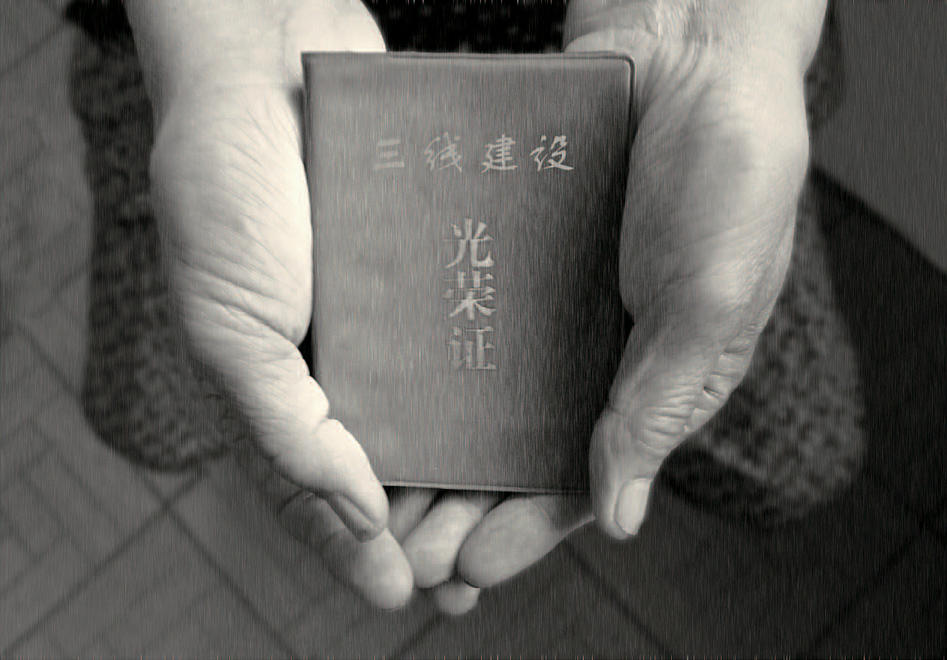 三线建设
光荣证